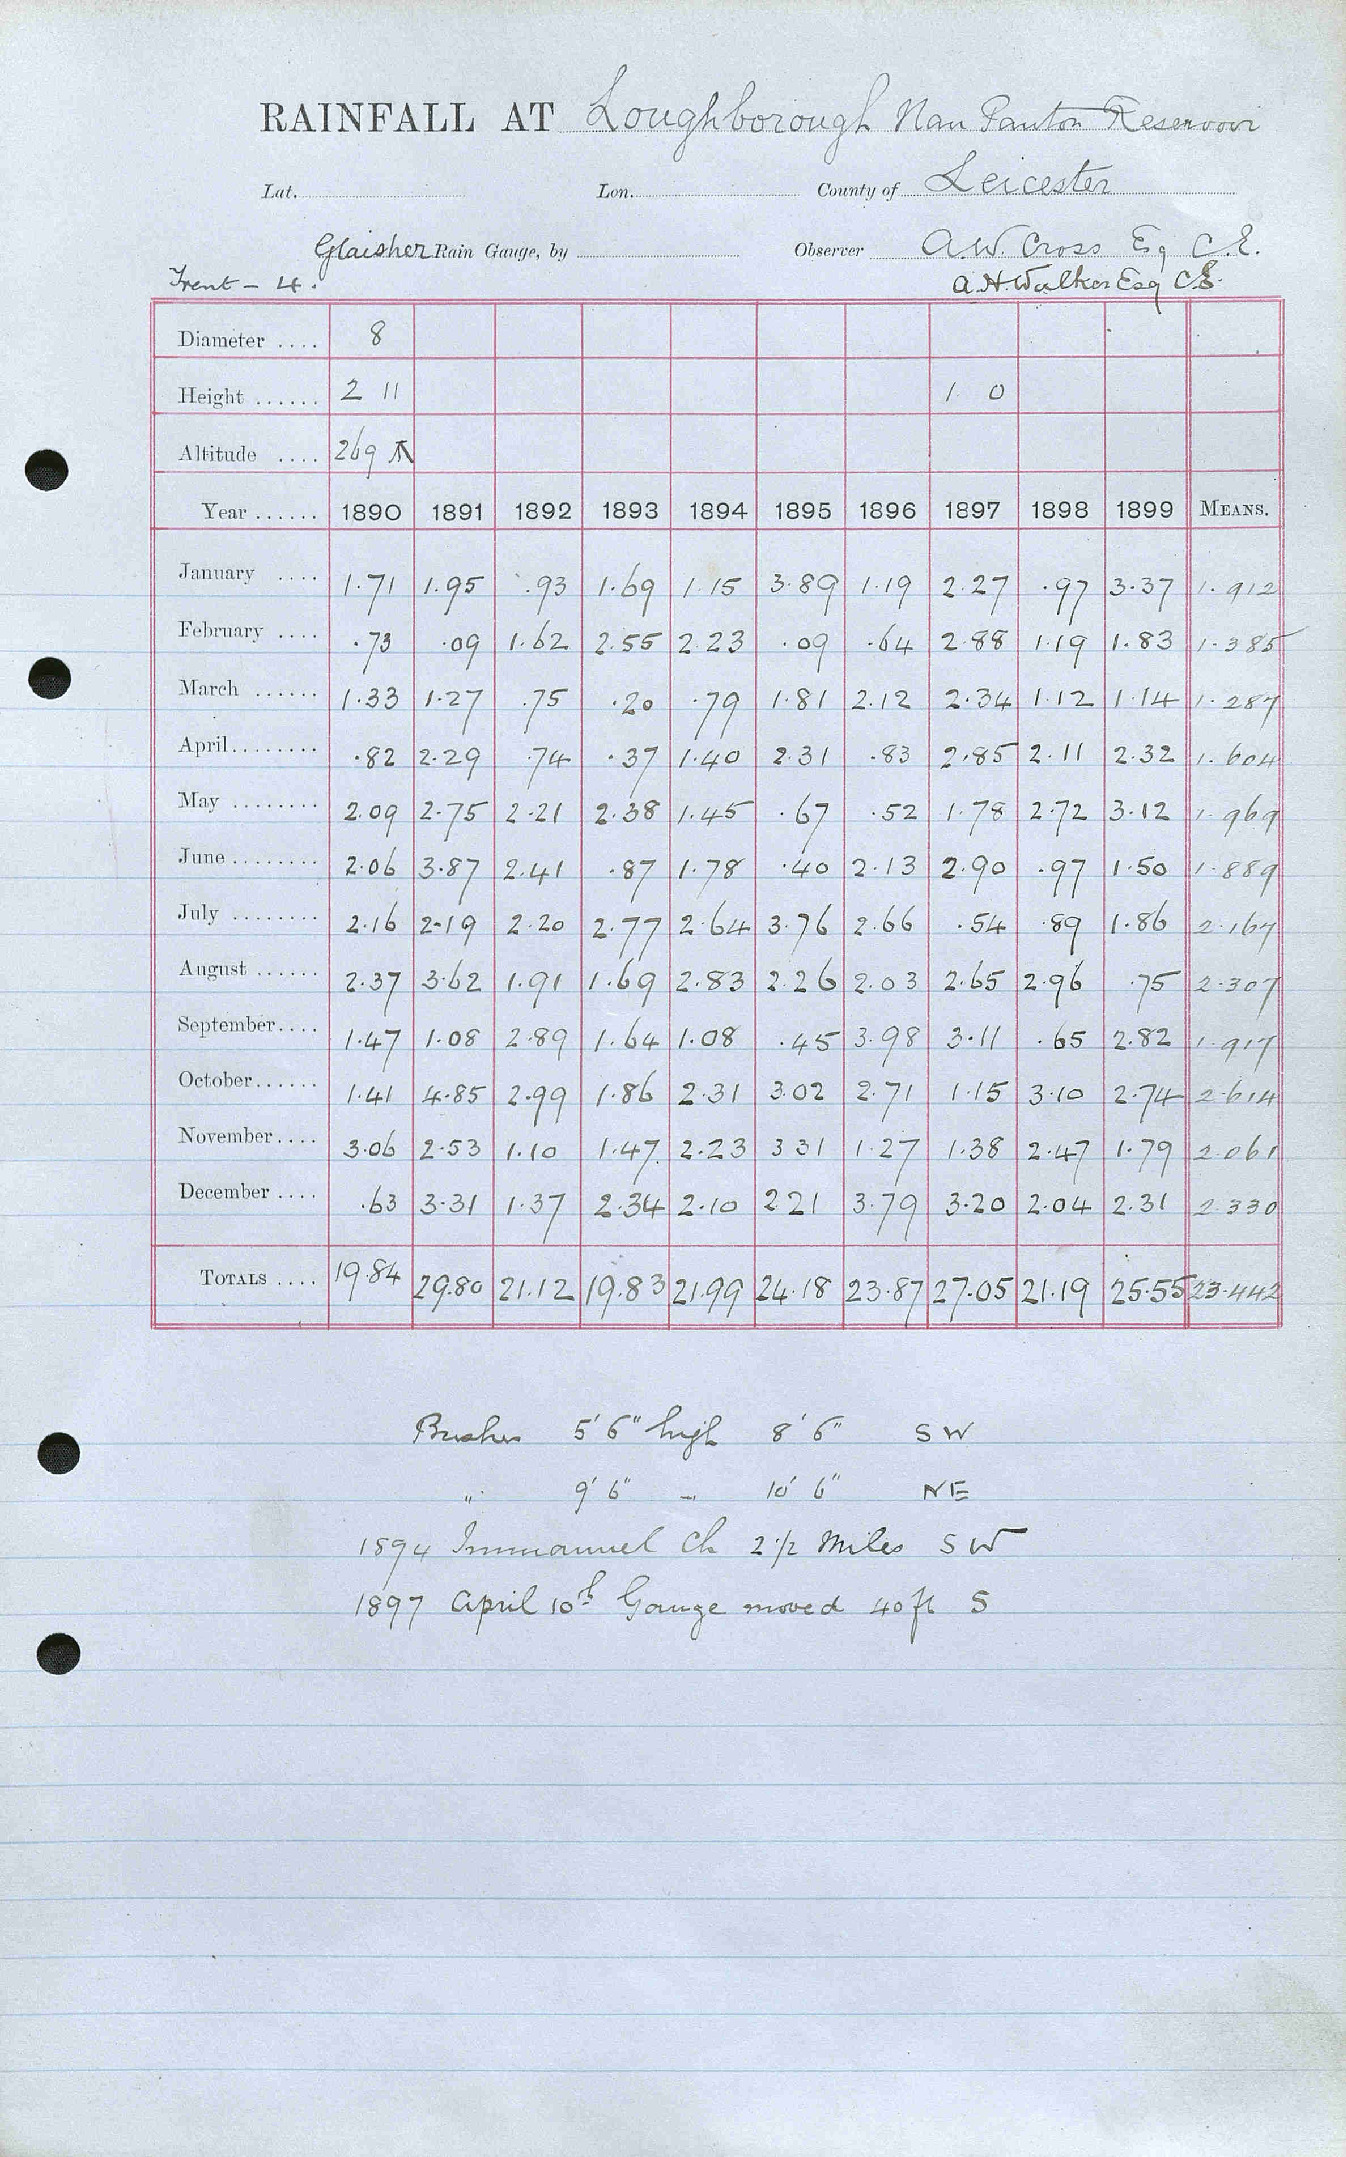 RAINFALL AT Loughborough Nan Panton Reservoir
Lat. Lon. County of Leicester
Glaisher Rain Gauge, by Observer A.W. Cross Esq C.E.
Trent - 4. A.H Walker Esq C.E.
Diameter .... 8
Height ...... 2 11 1 0
Altitude .... 269
Year ...... 1890 1891 1892 1893 1894 1895 1896 1897 1898 1899 MEANS.
January .... 1.71 1.95 .93 1.69 1.15 3.89 1.19 2.27 .97 3.37 1.912
February .... .73 .09 1.62 2.55 2.23 .09 .64 2.88 1.19 1.83 1.385
March ...... 1.33 1.27 .75 .20 .79 1.81 2.12 2.34 1.12 1.14 1.287
April ........ .82 2.29 .74 .37 1.40 2.31 .83 2.85 2.11 2.32 1.604
May ........ 2.09 2.75 2.21 2.38 1.45 .67 .52 1.78 2.72 3.12 1.969
June ........ 2.06 3.87 2.41 .87 1.78 .40 2.13 2.90 .97 1.50 1.889
July ........ 2.16 2.19 2.20 2.77 2.64 3.76 2.66 .54 .89 1.86 2.167
August ...... 2.37 3.62 1.91 1.69 2.83 2.26 2.03 2.65 2.96 .75 2.307
September .... 1.47 1.08 2.89 1.64 1.08 .45 3.98 3.11 .65 2.82 1.917
October ...... 1.41 4.85 2.99 1.86 2.31 3.02 2.71 1.15 3.10 2.74 2.614
November .... 3.06 2.53 1.10 1.47 2.23 3 31 1.27 1.38 2.47 1.79 2.061
December .... .63 3.31 1.37 2.34 2.10 2 21 3.79 3.20 2.04 2.31 2.330
TOTALS .... 19.84 29.80 21.12 19.83 21.99 24.18 23.87 27.05 21.19 25.55 23.442
Bushes 5' 6" high 8' 6" SW
" 9' 6" " 10' 6" NE
1894 Immanuel Ch 2 1/2 Miles SW
1897 April 10th Gauge moved 40 ft S